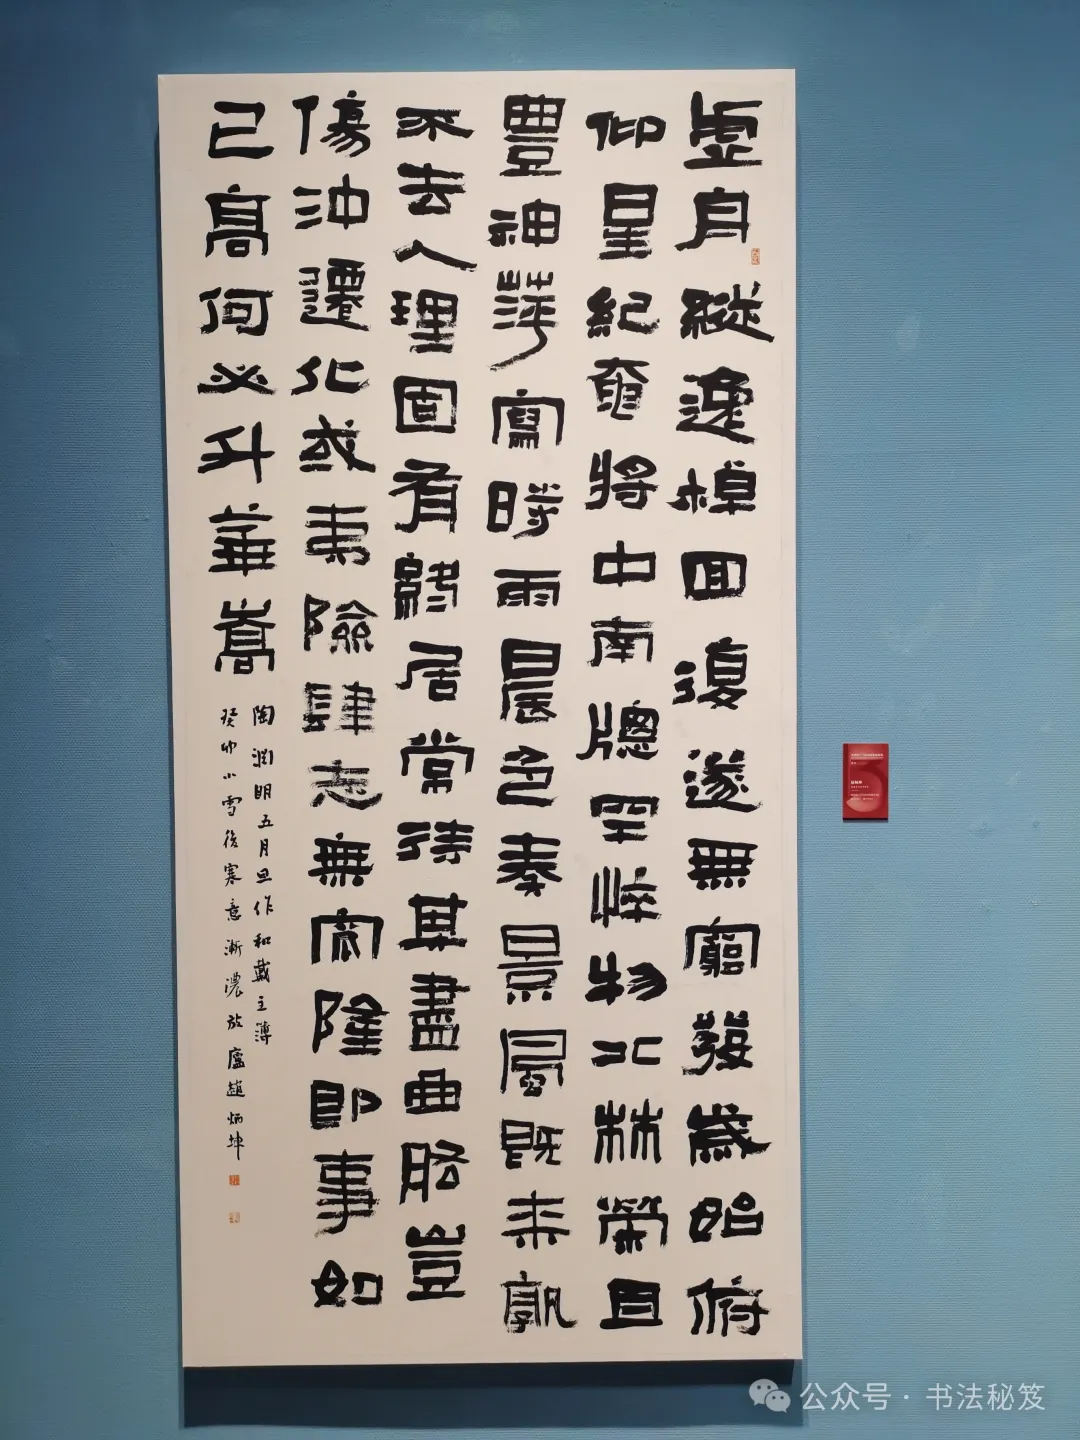 虛舟縱逸棹回復遂無窮發歲始俯
仰星紀奄將中南牕罕悴物北林榮且
豐神萍寫時雨晨色奏景風既來孰
不去人理固有終居常待其盡曲肱豈
傷沖遷化或夷險肆志無窊隆即事如
已高何必升華嵩
陶淵明五月旦作和戴主簿
癸卯小雪後寒意漸濃廬趙炳坤
公众号 · 书法秘笈